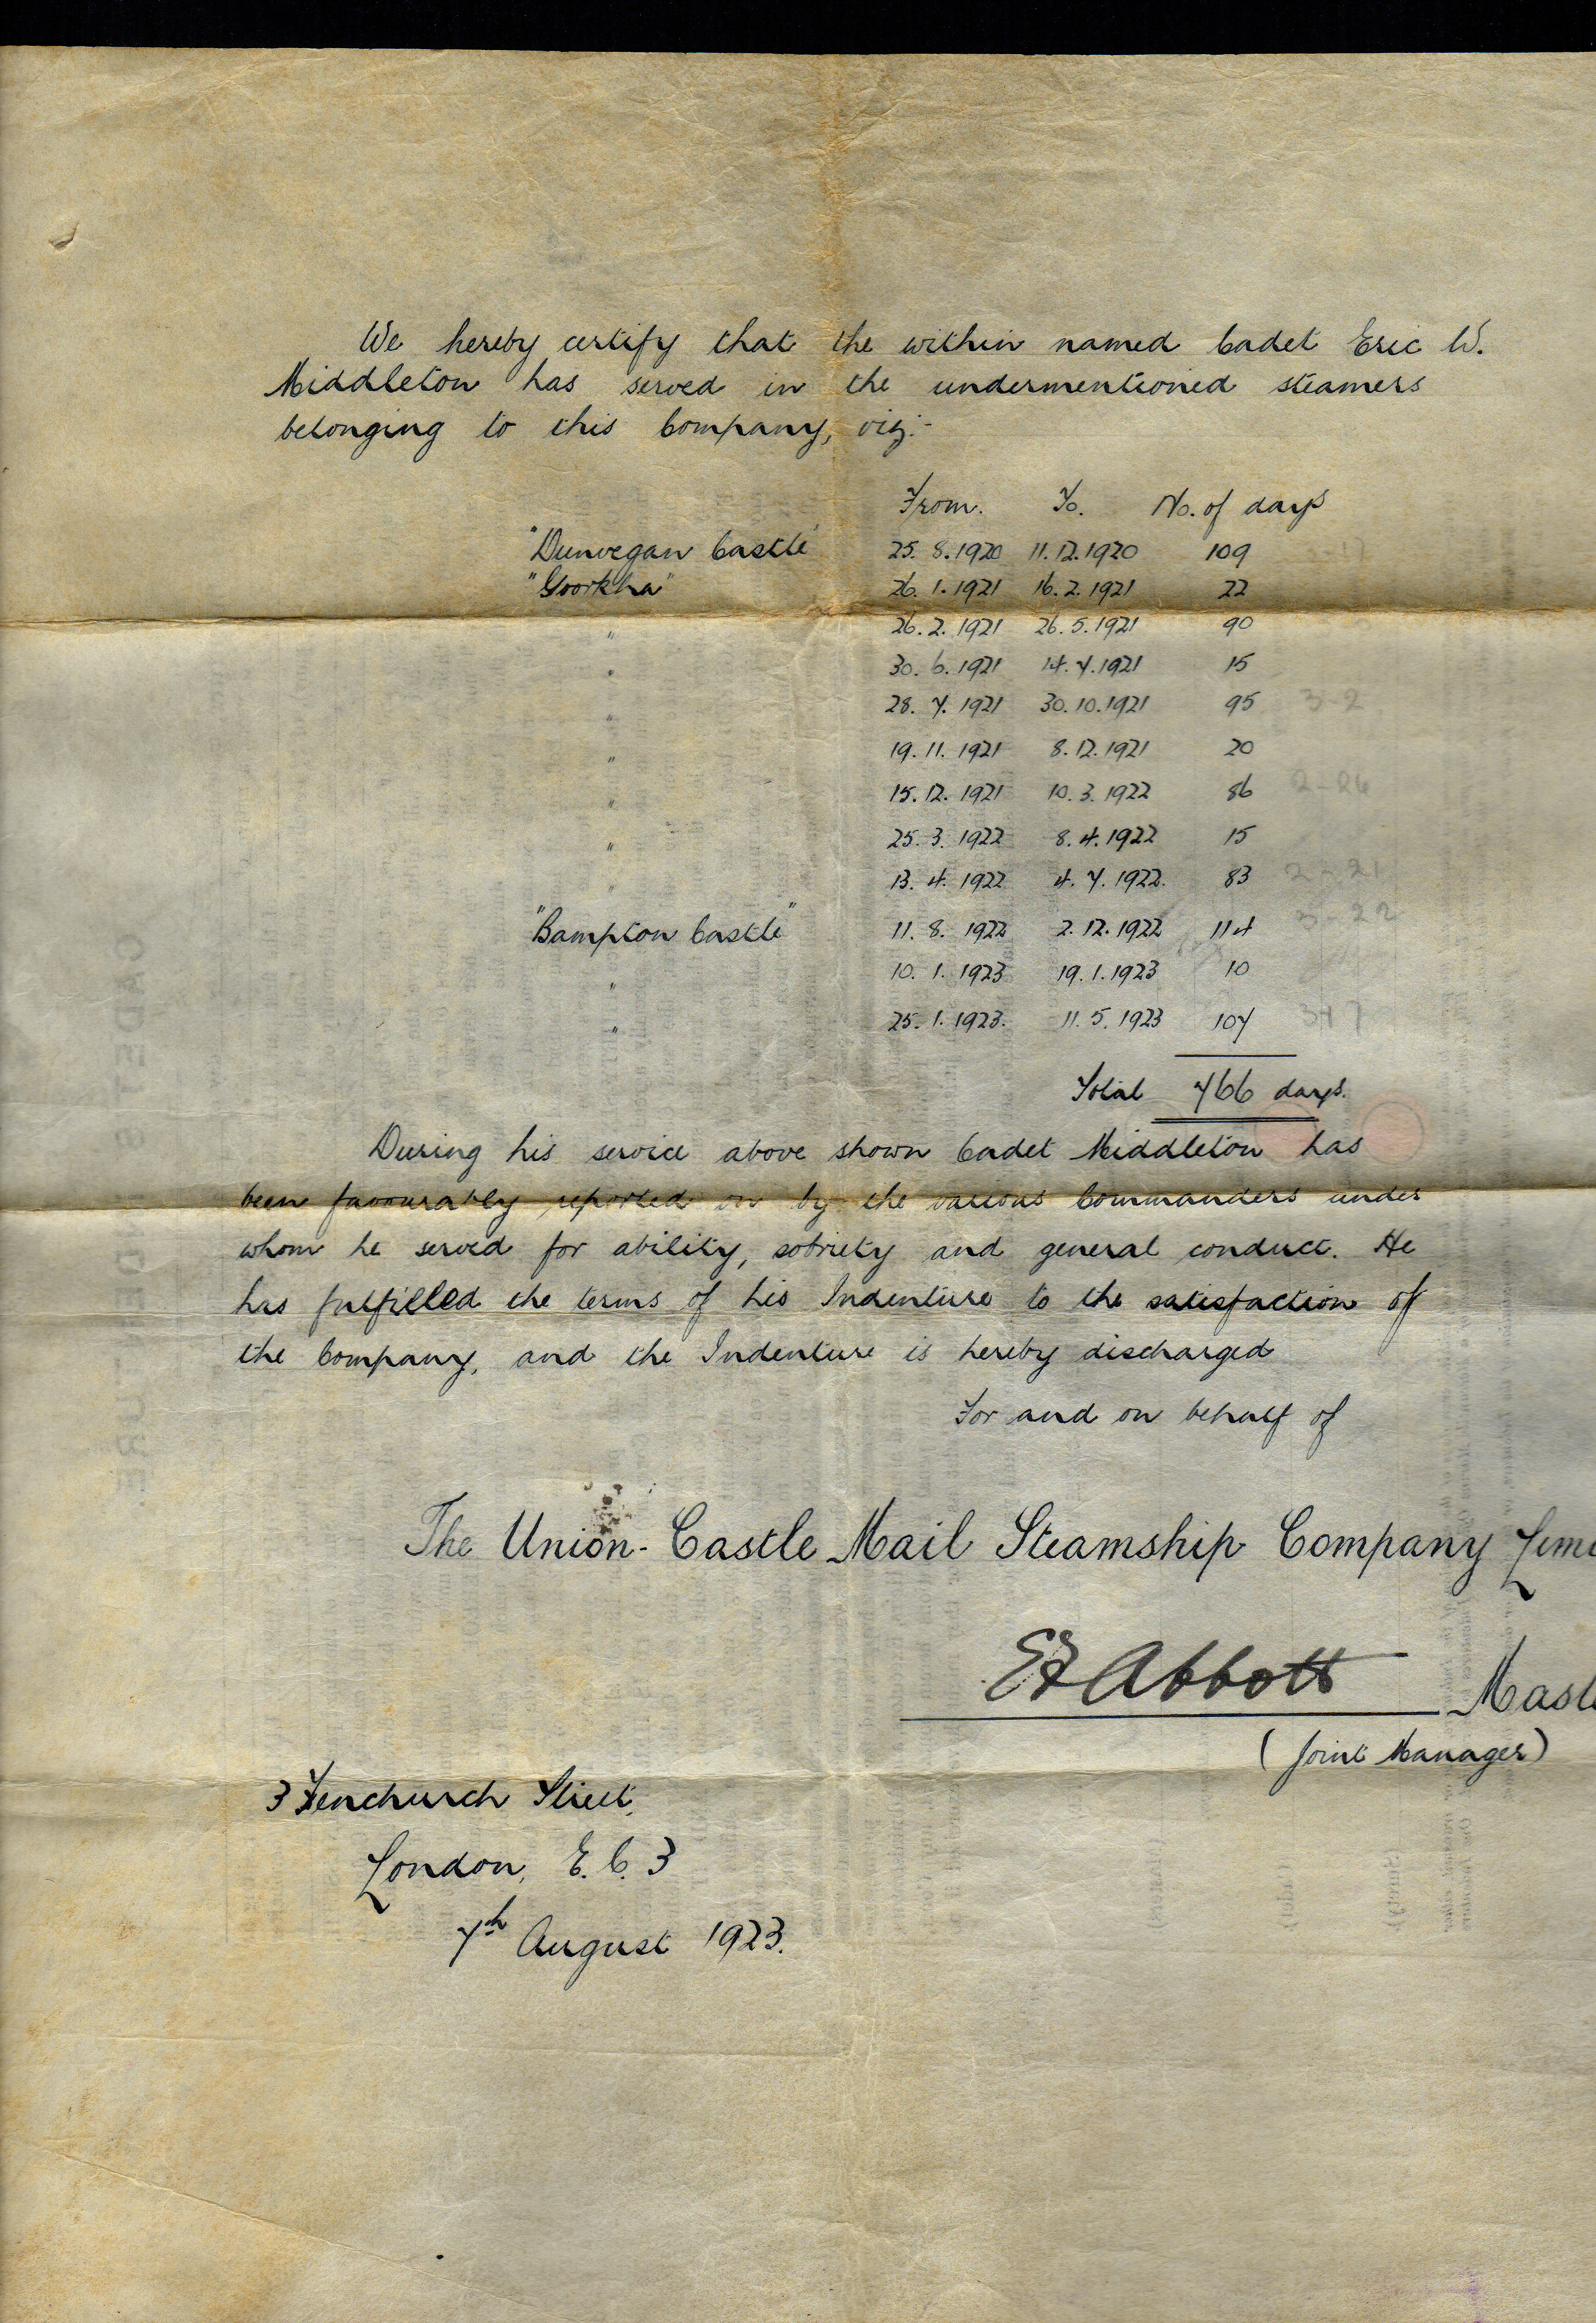 We hereby certify that the within named Cadet Eric W.
Middleton has served in the undermentioned steamers
belonging to this Company, viz:-
From. To. No. of days
"Dunvegan Castle" 25. 8. 1920 11. 12. 1920 109
"Goorkha" 26. 1. 1921 16. 2. 1921 22
" 26. 2. 1921 26. 5. 1921 90
" 30. 6. 1921 14. 7. 1921 15
" 28. 7. 1921 30. 10. 1921 95 3-2
" 19. 11. 1921 8. 12. 1921 20
" 15. 12. 1921 10. 3. 1922 86 2-24
" 25. 3. 1922 8. 4. 1922 15
" 13. 4. 1922 4. 7. 1922. 83 2-21
"Bampton Castle" 11. 8. 1922 2. 12. 1922 114 3-22
" 10. 1. 1923 19. 1. 1923 10
" 25. 1. 1923. 11. 5. 1923 107
Total 766 days.
During his service above shown Cadet Middleton has
been favourably reported on by the various Commanders under
whom he served for ability, sobriety and general conduct. He
has fulfilled the terms of his Indenture to the satisfaction of
the Company, and the Indenture is hereby discharged
For and on behalf of
The Union-Castle Mail Steamship Company Limi
EF Abbott Maste
(Joint Manager)
3 Fenchurch Street,
London, E.C. 3
7th August 1923.
CADET'S INDENTURE.